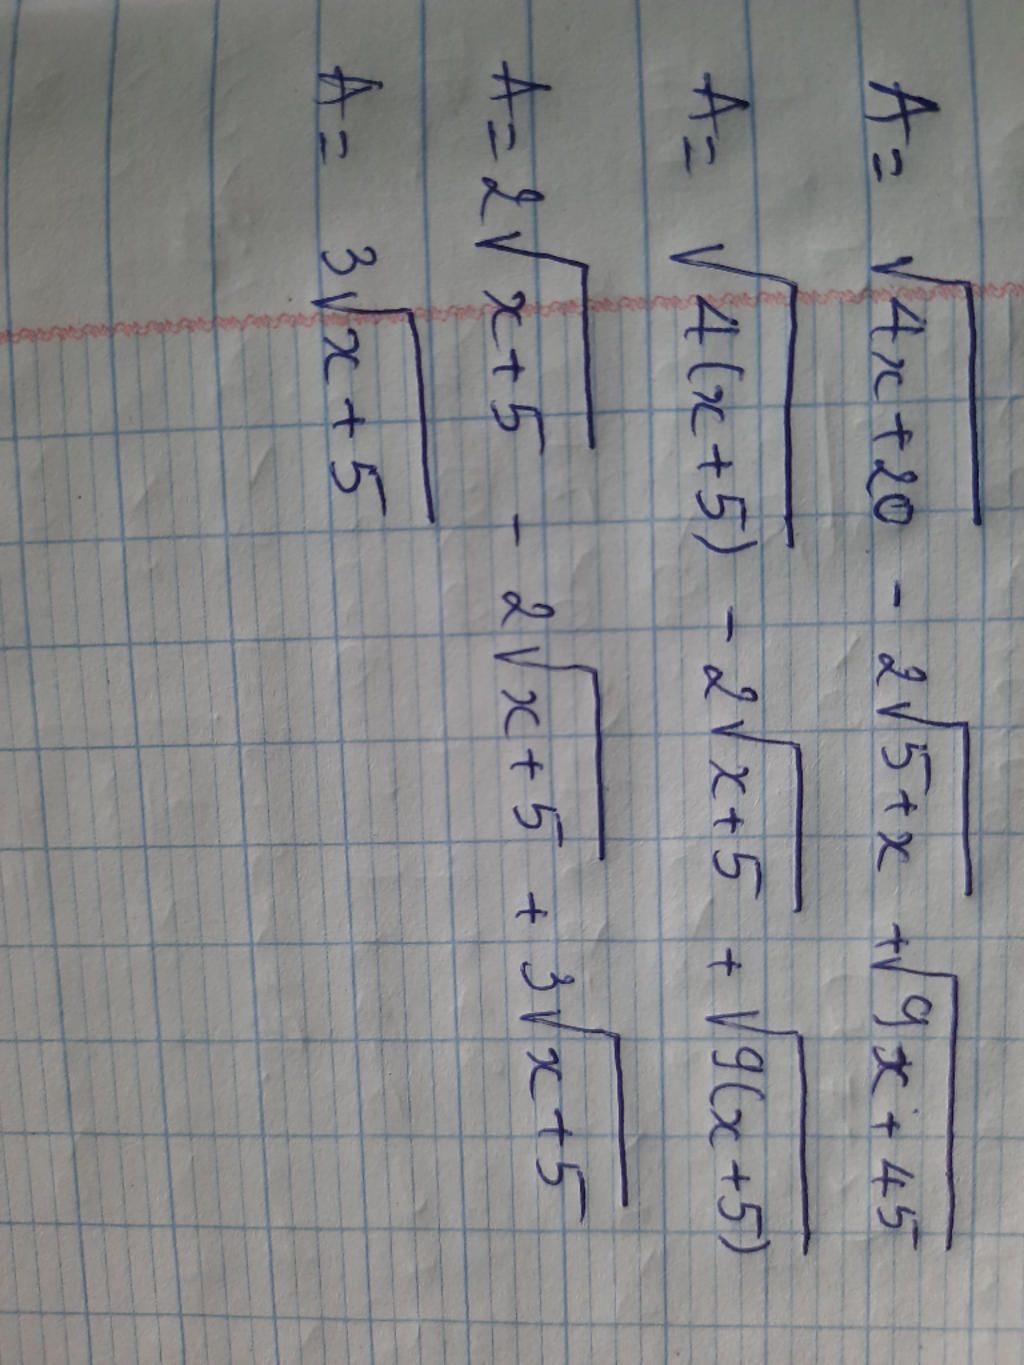 A = √(4x+20) - 2√(5+x) + √(9x+45)
A = √(4(x+5)) - 2√(x+5) + √(9(x+5))
A = 2√(x+5) - 2√(x+5) + 3√(x+5)
A = 3√(x+5)